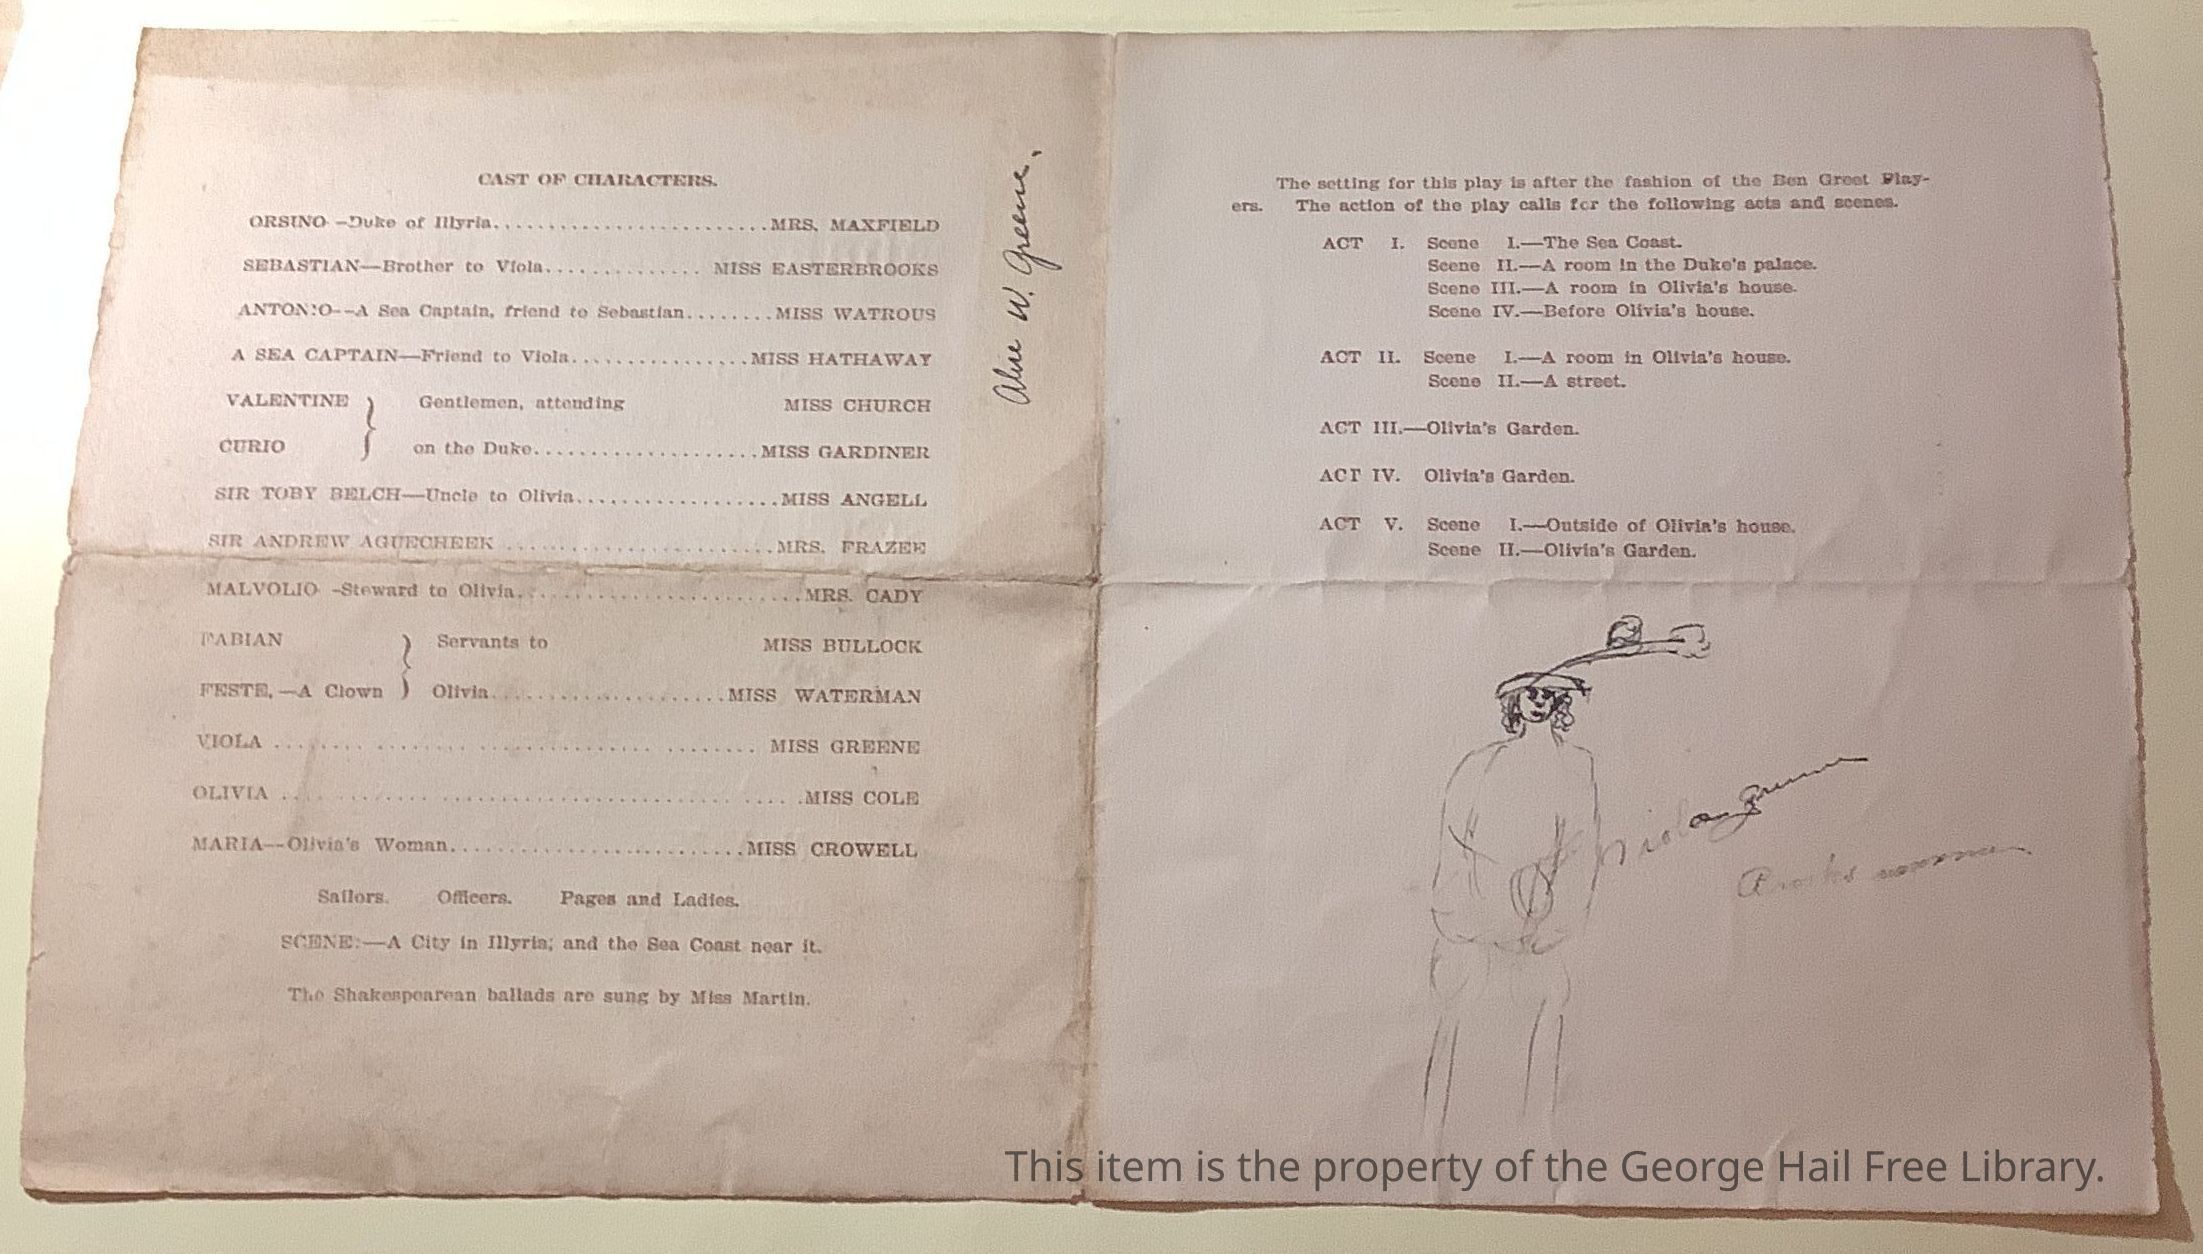 CAST OF CHARACTERS.
ORSINO -Duke of Illyria..........................MRS. MAXFIELD
SEBASTIAN—Brother to Viola.............. MISS EASTERBROOKS
ANTONIO--A Sea Captain, friend to Sebastian........MISS WATROUS
A SEA CAPTAIN—Friend to Viola................MISS HATHAWAY
VALENTINE } Gentlemen, attending MISS CHURCH
CURIO } on the Duke.....................MISS GARDINER
SIR TOBY BELCH—Uncle to Olivia...................MISS ANGELL
SIR ANDREW AGUECHEEK .........................MRS. FRAZEE
MALVOLIO -Steward to Olivia...........................MRS. CADY
FABIAN } Servants to MISS BULLOCK
FESTE, —A Clown } Olivia......................MISS WATERMAN
VIOLA .............................................. MISS GREENE
OLIVIA ..................................................MISS COLE
MARIA--Olivia's Woman............................MISS CROWELL
Sailors. Officers. Pages and Ladies.
SCENE:—A City in Illyria; and the Sea Coast near it.
The Shakespearean ballads are sung by Miss Martin.
Alice W. Greene.
The setting for this play is after the fashion of the Ben Greet Play-
ers. The action of the play calls for the following acts and scenes.
ACT I. Scene I.—The Sea Coast.
Scene II.—A room in the Duke's palace.
Scene III.—A room in Olivia's house.
Scene IV.—Before Olivia's house.
ACT II. Scene I.—A room in Olivia's house.
Scene II.—A street.
ACT III.—Olivia's Garden.
ACT IV. Olivia's Garden.
ACT V. Scene I.—Outside of Olivia's house.
Scene II.—Olivia's Garden.
Viola Greene
This item is the property of the George Hail Free Library.